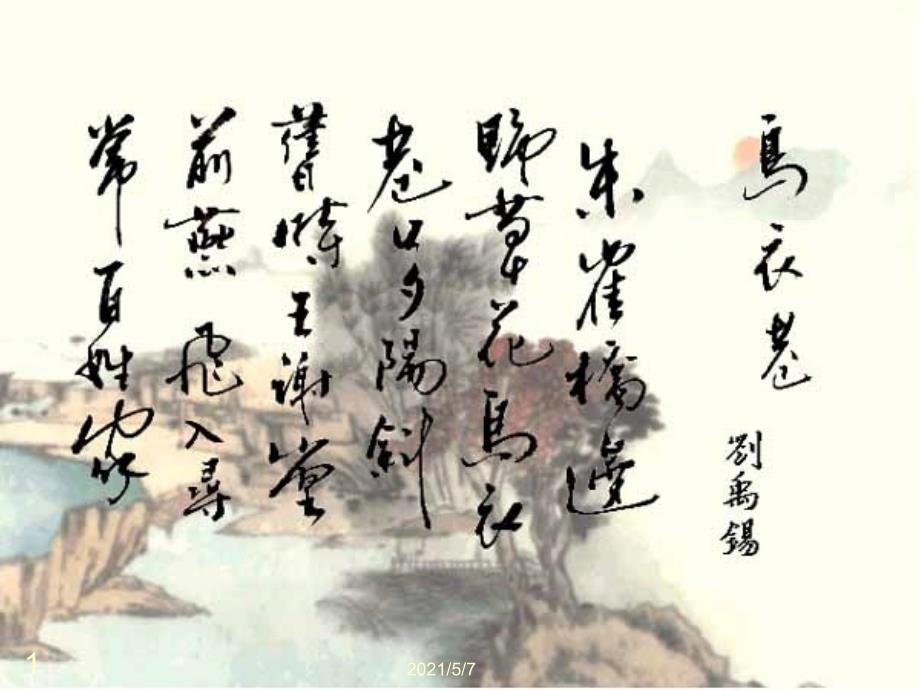 烏衣巷
劉禹錫
朱雀橋邊
野草花烏衣
巷口夕陽斜
舊時王謝堂
前燕飛入尋
常百姓家
1
2021/5/7